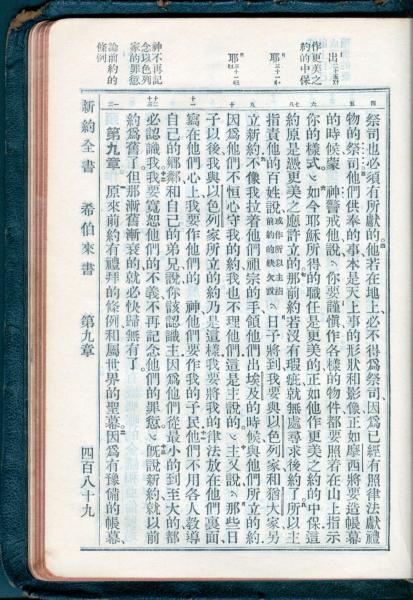 出
作更美之約的中保
耶
耶
神不再記念以色列家的罪愆
論前約的條例
四
五
六
七八
九
十
十一
十二
十三
一二
祭司也必須有所獻的他若在地上必不得爲祭司因爲已經有照律法獻禮
物的祭司他們供奉的事本是天上事的形狀和影像正如摩西將要造帳幕
的時候蒙 神警戒他說你要謹愼作各樣的物件都要照着在山上指示
你的樣式如今耶穌所得的職任是更美的正如他作更美之約的中保這
約原是憑更美之應許立的那前約若沒有瑕疵就無處尋求後約了所以主
指責他的百姓說或作所以主指前約的缺欠說日子將到我要與以色列家和猶大家另
立新約不像我拉着他們祖宗的手領他們出埃及的時候與他們所立的約
因爲他們不恒心守我的約我也不理他們這是主說的主又說那些日
子以後我與以色列家所立的約乃是這樣我要將我的律法放在他們裏面
寫在他們心上我要作他們的 神他們要作我的子民他們不用各人敎導
自己的鄉鄰和自己的弟兄說你該認識主因爲他們從最小的到至大的都
必認識我我要寬恕他們的不義不再記念他們的罪愆旣說新約就以前
約爲舊了但那漸舊漸衰的就必快歸無有了
第九章 原來前約有禮拜的條例和屬世界的聖幕因爲有豫備的帳幕
新約全書 希伯來書 第九章 四百八十九